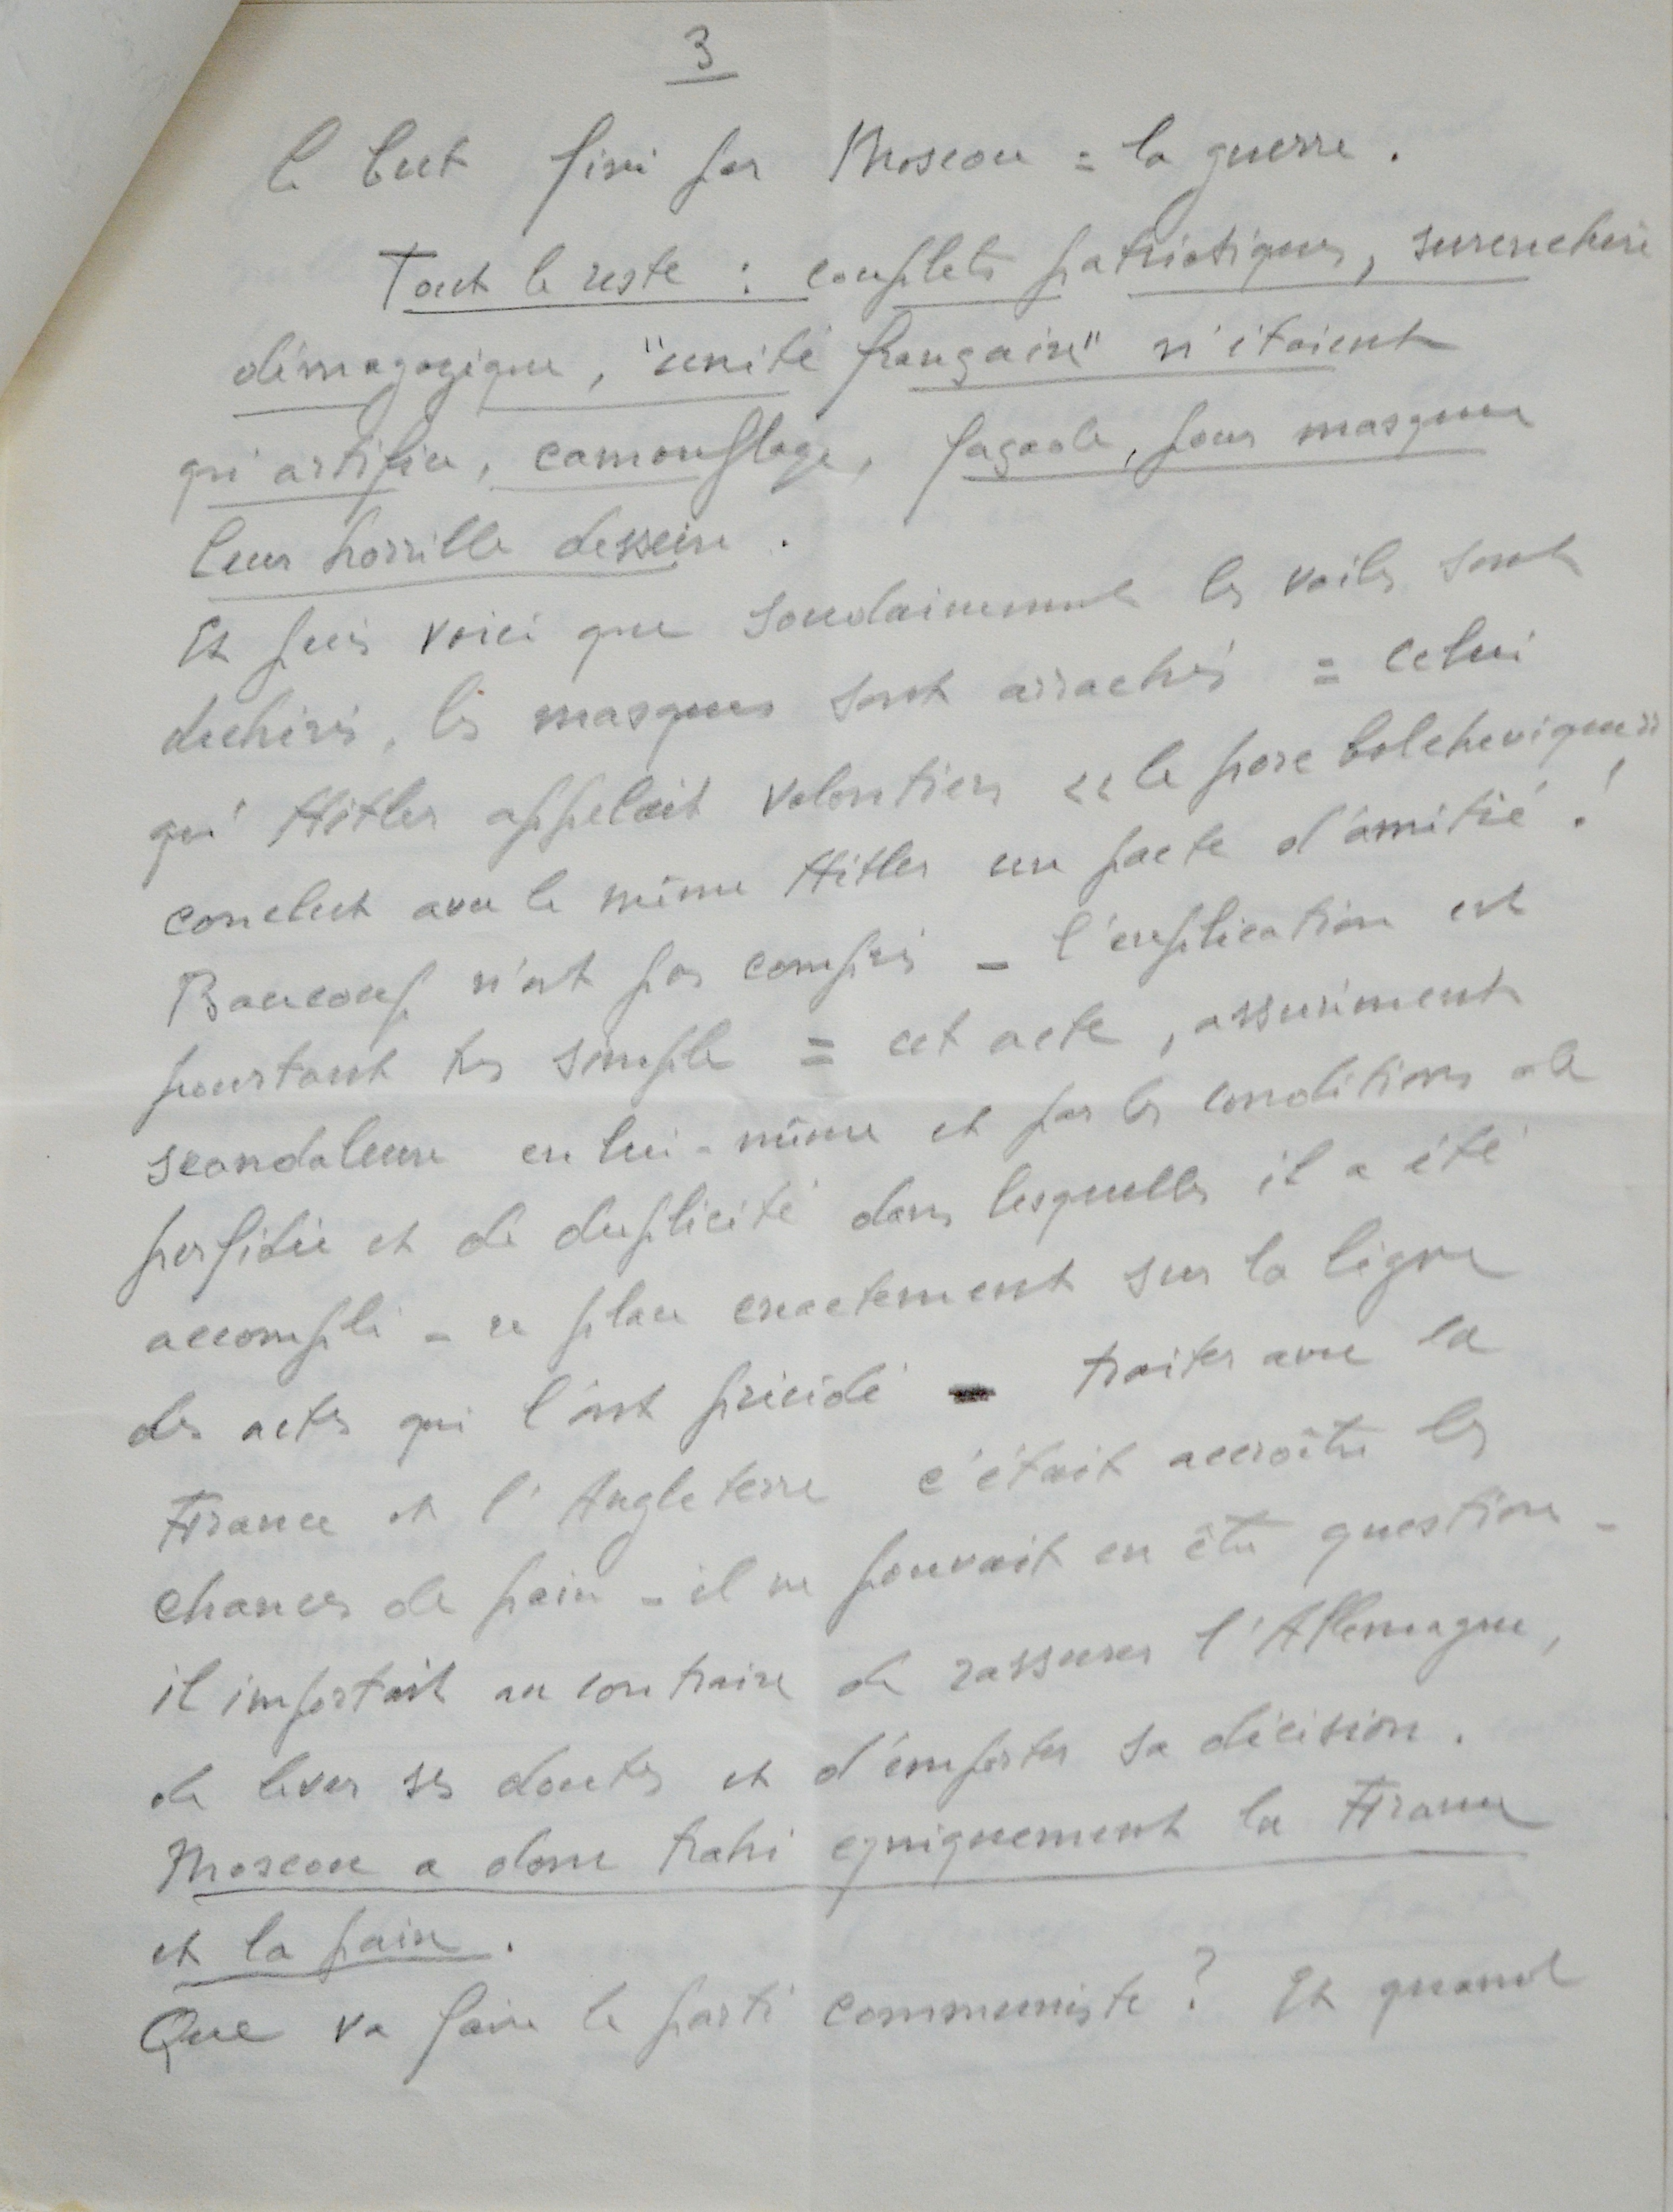 3
le but fixé par Moscou = la guerre.
Tout le reste : couplets patriotiques, surenchère
démagogique, "unité française" n'étaient
qu'artifice, camouflage, façade, pour masquer
leur horrible dessein.
Et puis voici que soudainement les voiles sont
dechirés, les masques sont arrachés = celui
qu'Hitler appelait volontiers "le porc bolchevique"
conclut avec le même Hitler un pacte d'amitié !
Beaucoup n'ont pas compris - l'explication est
pourtant très simple = cet acte, assurément
scandaleux en lui-même et par les conditions de
perfidie et de duplicité dans lesquelles il a été
accompli - se place exactement sur la ligne
des actes qui l'ont précédé - traiter avec la
France et l'Angleterre c'était accroître les
chances de paix - il ne pouvait en être question -
il importait au contraire de rassurer l'Allemagne,
de lever ses doutes et d'emporter sa décision.
Moscou a donc trahi cyniquement la France
et la paix.
Que va faire le parti communiste ? Et quand